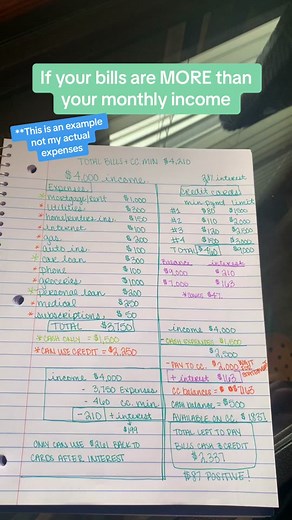 If your bills are MORE than
your monthly income
**This is an example
not my actual
expenses
TOTAL BILLS + CC MIN $4,210
$4,000 income
Expenses
*mortgage/rent $1,000
*utilities $300
*home/renters ins. $150
*internet $100
*gas $200
*auto ins. $100
*car loan $300
*phone $100
*groceries $1000
*personal loan $200
*medical $250
*subscriptions $150
TOTAL = $3750
*CASH ONLY = $1,500
*CAN USE CREDIT = $2,250
interest
Credit cards
min pymt limit
#1 $80
#2 $110 $2000
#3 $120 $2,500
#4 $150
TOTAL $460 $9,000
Balance interest
$9,000 $210
$7,000 $163
*saves $47
income $4,000
- CASH EXPENSES $1,500
$2,500
- PAY TO CC $2,000
+ interest $163
CC balances = $7163
CASH balance = $500
AVAILABLE ON CC. $1837
TOTAL LEFT TO PAY
BILLS CASH & CREDIT
$2,337
$87 POSITIVE!
income $4,000
- 3,750 expenses
- 460 cc. min
-210 + interest
ONLY CAN USE $261 BACK TO
CARDS AFTER INTEREST